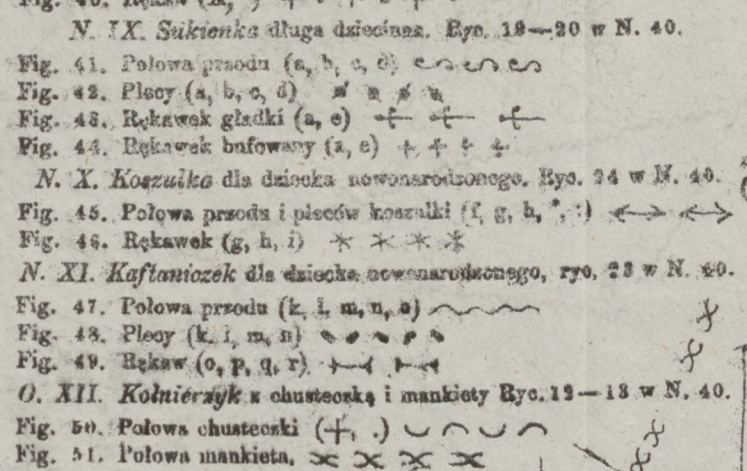 N. IX. Sukienka długa dziecinna. Ryc. 19—20 w N. 40.
Fig. 41. Połowa przodu (a, b, c, d)
Fig. 42. Plecy (a, b, c, d)
Fig. 43. Rękawek gładki (a, e)
Fig. 44. Rękawek bufowany (a, e)
N. X. Koszulka dla dziecka nowonarodzonego. Ryc. 24 w N. 40.
Fig. 45. Połowa przodu i pleców koszulki (f, g, h, *, :)
Fig. 46. Rękawek (g, h, i)
N. XI. Kaftaniczek dla dziecka nowonarodzonego, ryc. 23 w N. 40.
Fig. 47. Połowa przodu (k, l, m, n, o)
Fig. 48. Plecy (k, l, m, n)
Fig. 49. Rękaw (o, p, q, r)
O. XII. Kołnierzyk z chusteczką i mankiety Ryc. 12—13 w N. 40.
Fig. 50. Połowa chusteczki (+, .)
Fig. 51. Połowa mankieta.